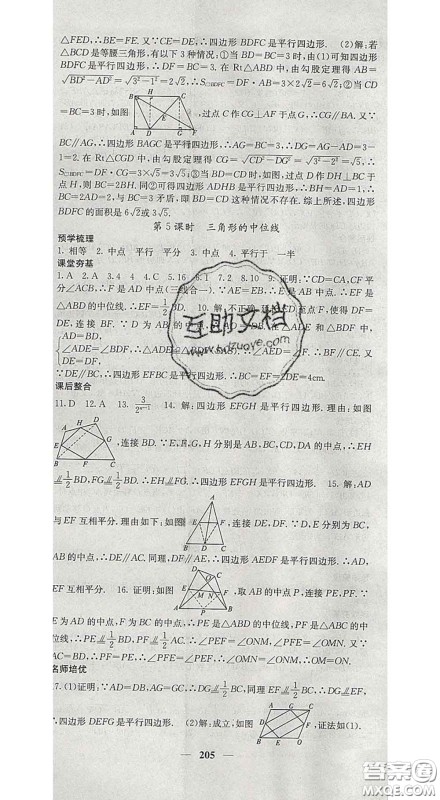 △FED,∴BE=FE.又∵CE=DE,∴四边形 BDFC 是平行四边形. (2)解:若
△BCD 是等腰三角形,有以下三种情况:①当 BD=BC=3 时,由(1)可知四边形
BDFC 是平行四边形,∴DF=BC=3.在 Rt△ABD 中,由勾股定理得 AB=
√BD²−AD²=√3²−1²=2√2,∴S▱BDFC=DF·AB=3×2√2=6√2;②当
CD=BC=3 时,如图
B H C
A D G F
,过点 C 作 CG⊥AF 于点 G,∴CG∥BA.又∵
BC∥AG,∴四边形 BAGC 是平行四边形,∴AG=BC=3,∴DG=AG−AD=3−
1=2.在 Rt△CDG 中,由勾股定理得 CG=√CD²−DG²=√3²−2²=√5,∴
S▱BDFC
H,则 BC=2BH.同②可得四边形 ADHB 是平行四边形,∴BH=AD=1,∴BC=
2BH=2,与 BC=3 矛盾,即 BD=CD 这种情况不存在.综上所述,四边形
BDFC 的面积是 6√2或 3√5.
第 5 课时 三角形的中位线
预学梳理
1.相等 2.中点 平行 平分 3.中点 4.平行于 一半
课堂夯基
1.A 2.A 3.4 4.C 5.16 6.1 7.2 8.2 9.证明:∵CD=CA,CF 平
分∠ACB,∴AF=DF(三线合一).又∵AE=EB,∴AE 是 AB 中点.∴EF 是
△ABD 的中位线.∴EF=1/2BD. 10.解:不正确
DE,连接 BF.∵D 为 AB 的中点,∴AD=BD.在△ADE 和△BDF 中,
AD=BD,
∠ADE=∠BDF,
DE=DF,
∵DE∥BC,∴四边形 BCEF 是平行四边形,∴BC=EF=2DE=4cm.
课后整合
11.D 12.A 13.3/2ⁿ⁻¹ 14.解:四边形 EFGH 是平行四边形.理由:如图
A H D
E G
B F C
,连接 BD.∵E,F,G,H 分别是 AB,BC,CD,DA 的中点,∴EH
∥1/2BD,FG∥1/2BD.∴EH∥FG,∴四边形 EFGH 是平行四边形. 15.解:AD
与 EF 互相平分.理由如下:如图
A
F E
B D C
,连接 DE,DF.∵D,E 分别为 BC,
AB 的中点,∴DE∥AC.同理,DF∥AE,∴四边形 AEDF 是平行四边形,∴AD,
EF 互相平分. 16.证明:如图
D C
E
M N
A P B
,取 AB 的中点 P,连接 PE,PF.∵
E 为 AD 的中点,F 为 BC 的中点,∴PE 是△ABD 的中位线,PF 是△ABC 的中
位线,∴PE∥1/2BD,PF∥1/2AC.∴∠PEF=∠ONM,∠PFE=∠OMN.又∵
AC=BD,∴PE=PF.∴∠PEF=∠PFE.∴∠OMN=∠ONM.
名师培优
17.(1)证明:∵AD=DB,AG=GC,∴DG∥1/2BC,同理 EF∥1/2BC,∴DG∥EF,
∴四边形 DEFG 是平行四边形. (2)解:成立,如图
A G C
D F
B E O
,证法如(1).
205
互助文档
www.bdzuoye.com
答案圈
MXQE.COM